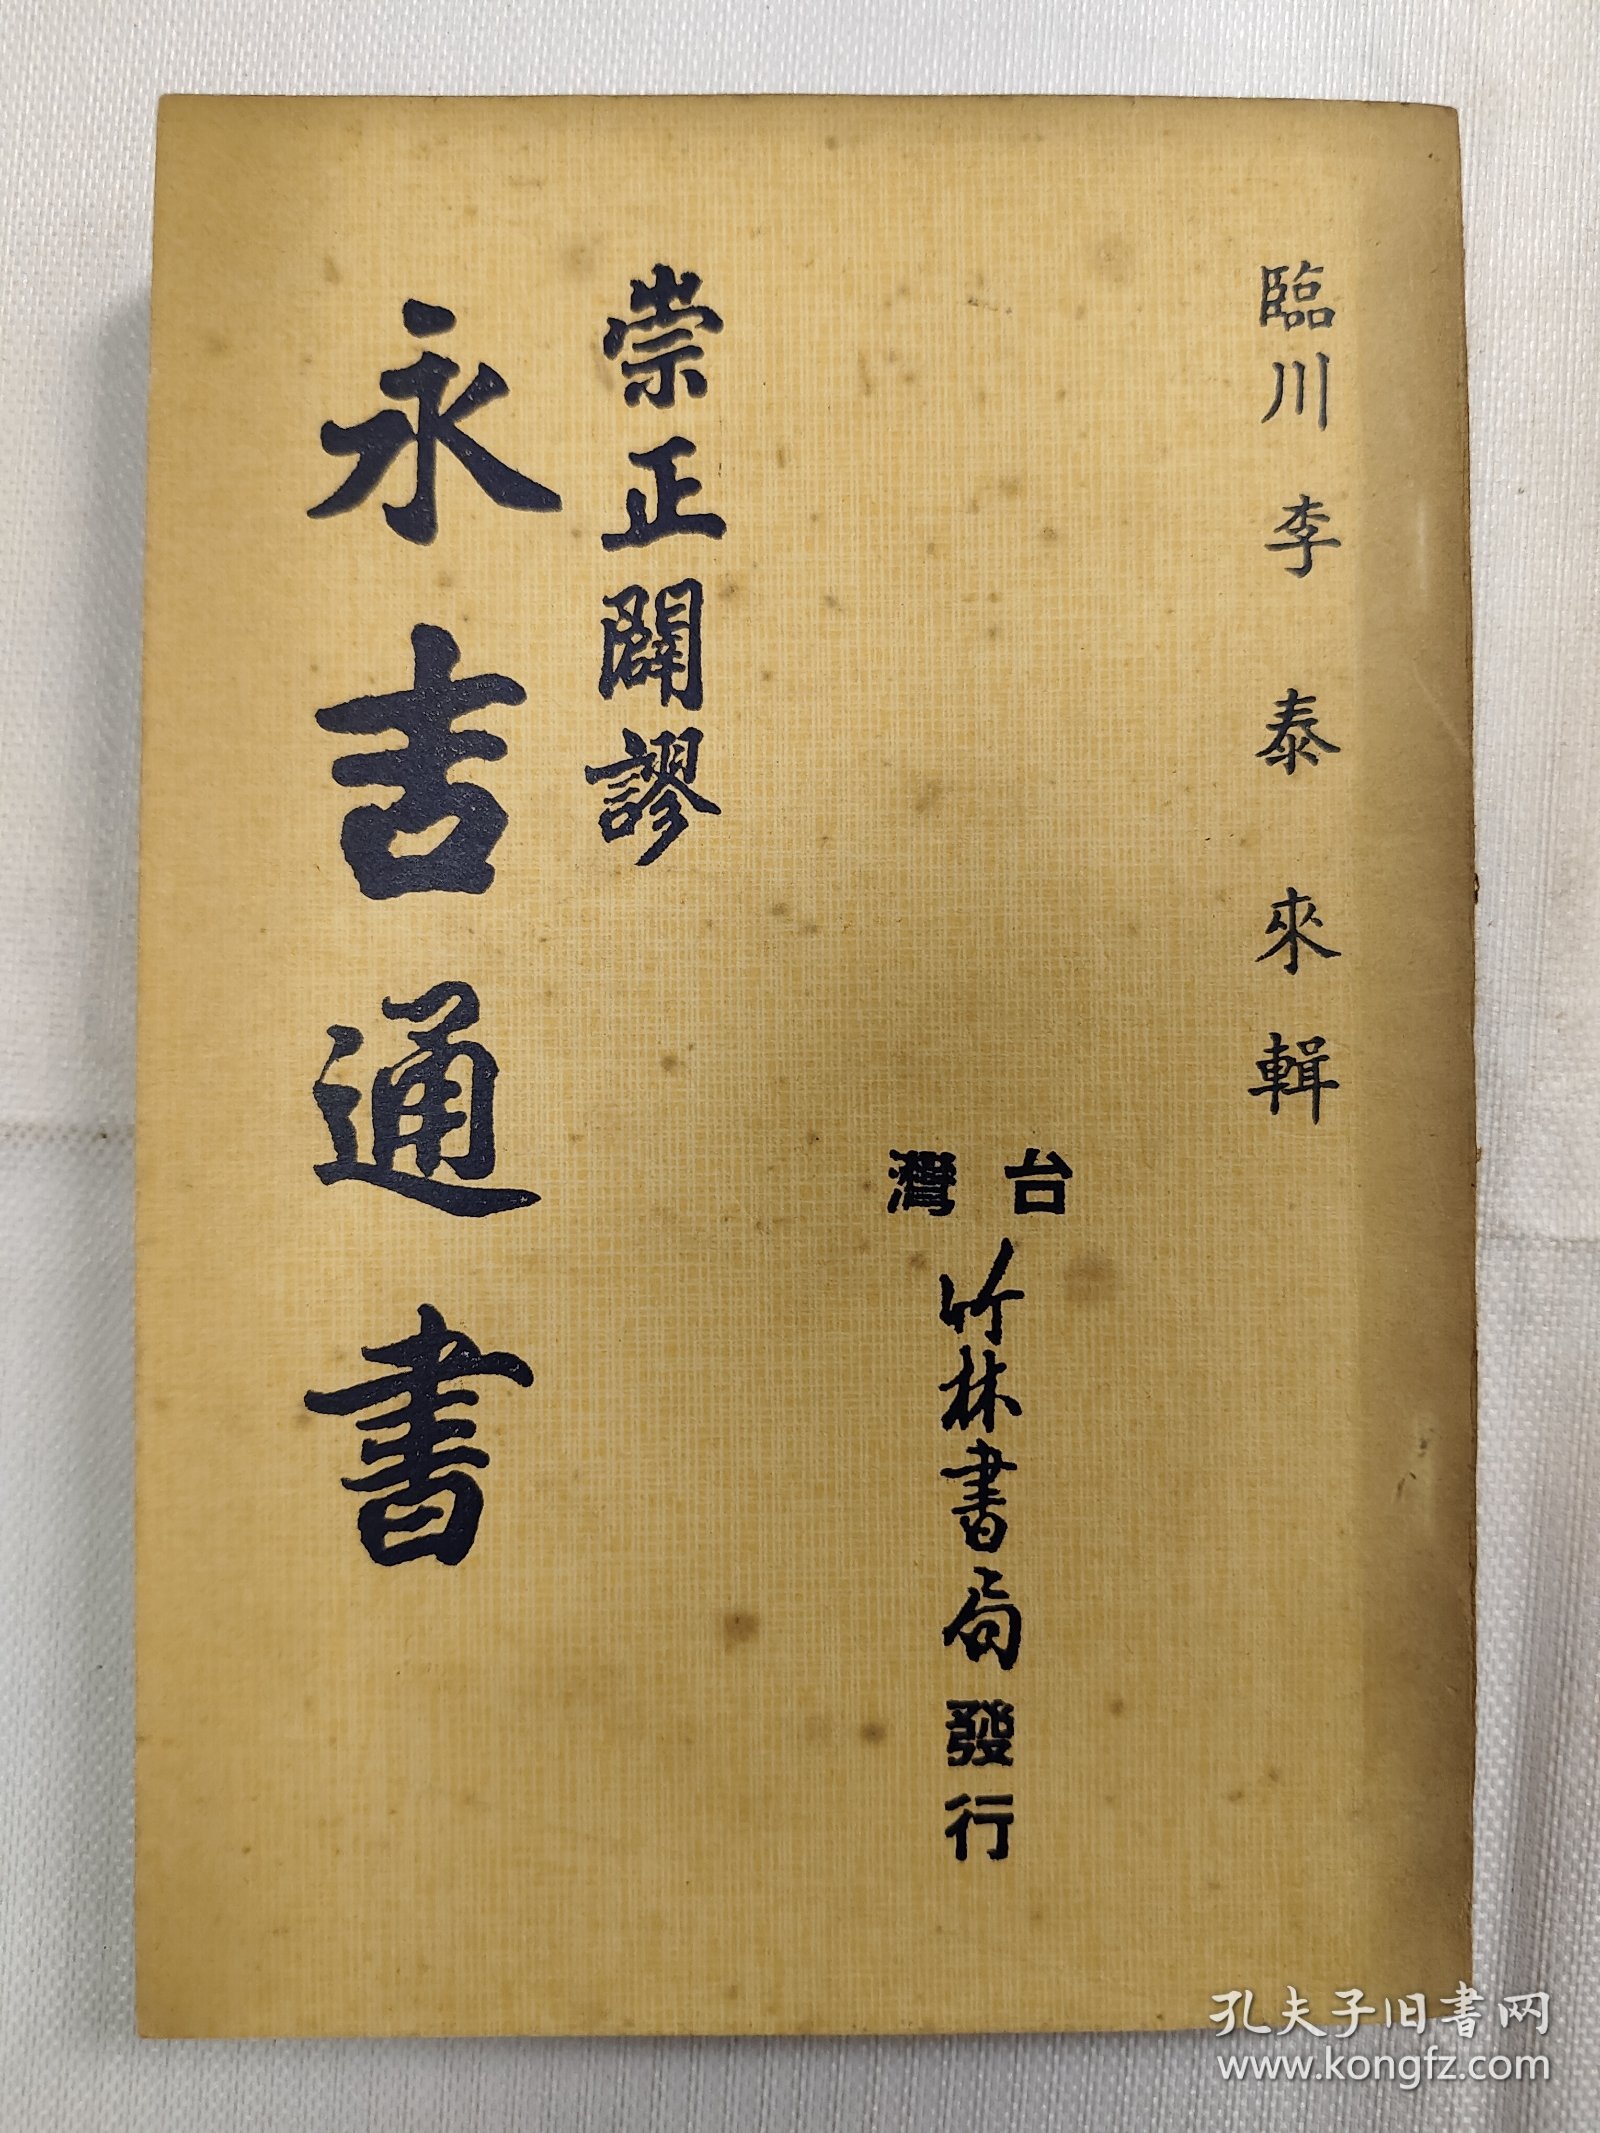 臨川李泰來輯
崇正闢謬
永吉通書
台灣
竹林書局發行
孔夫子旧书网
www.kongfz.com